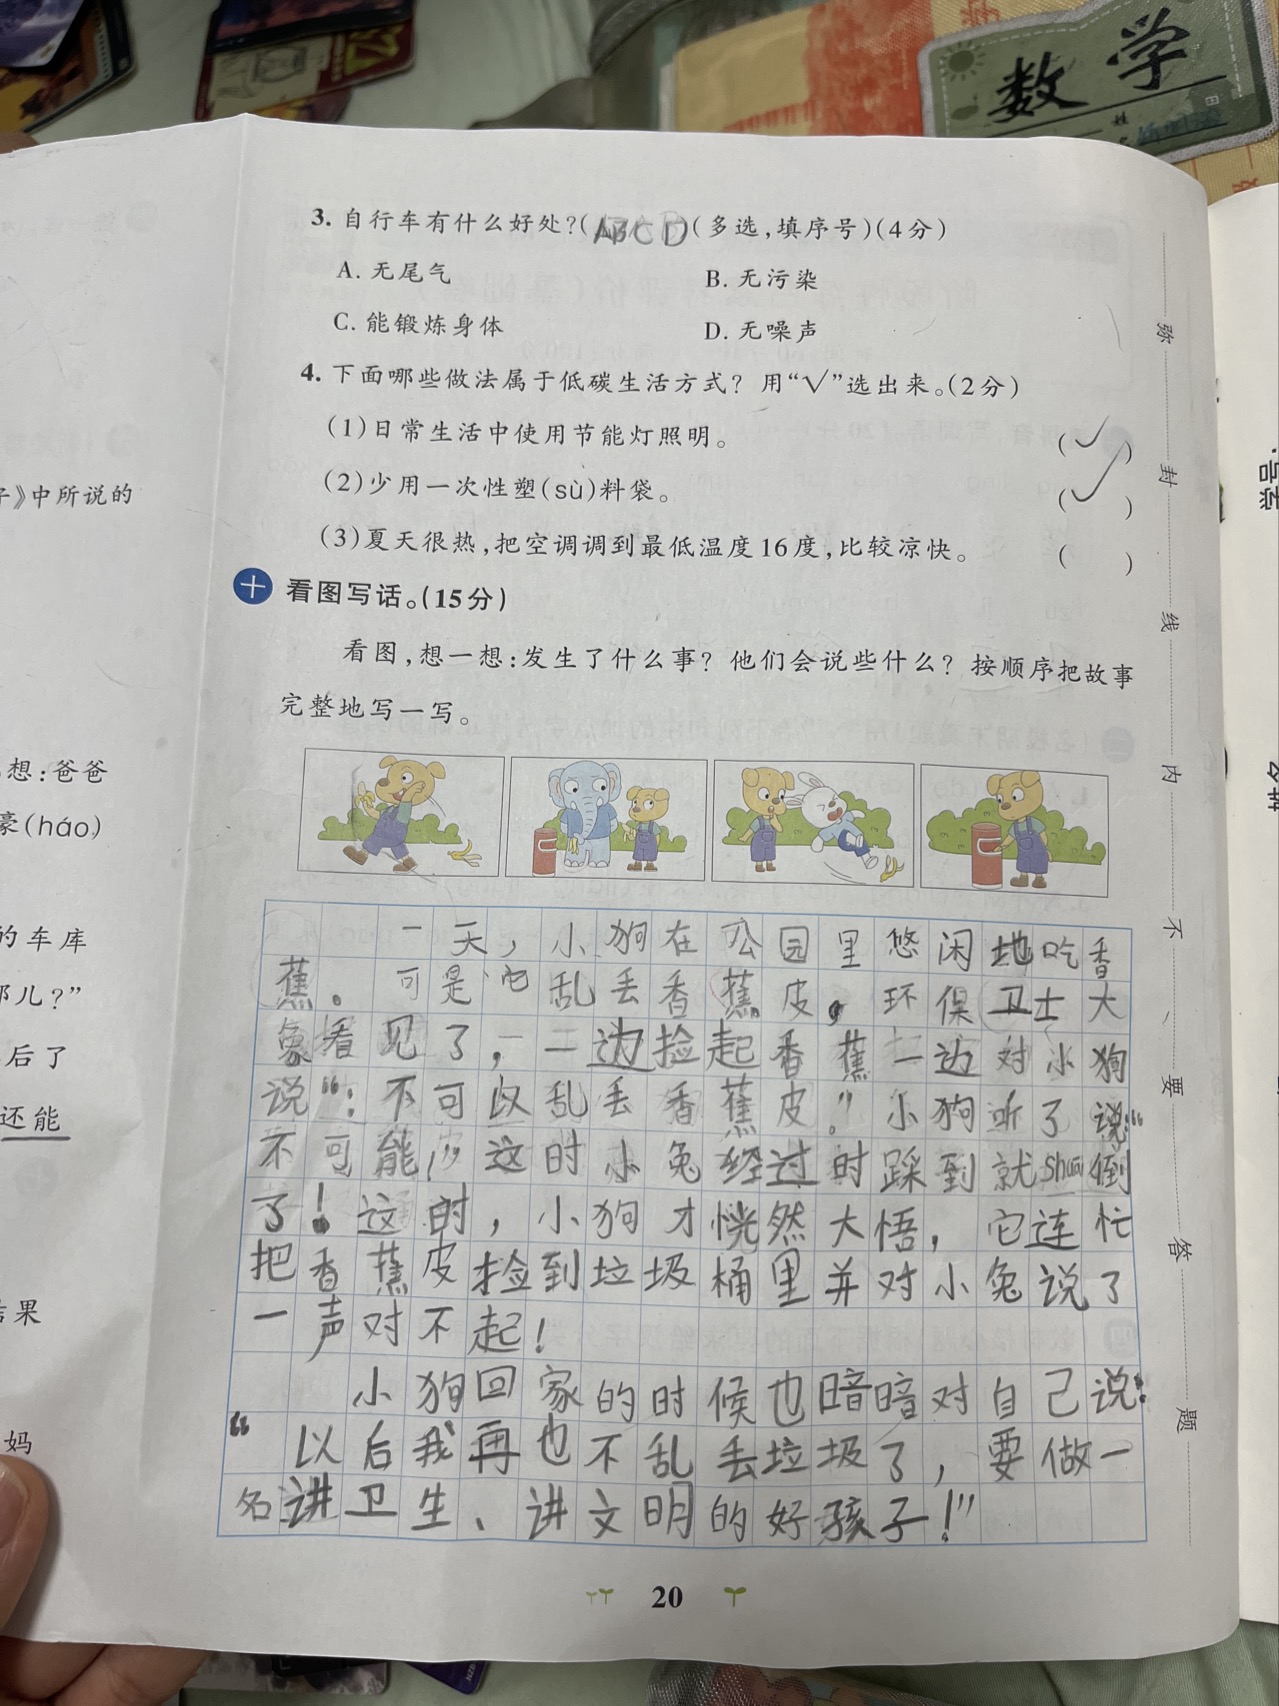 数学
3. 自行车有什么好处?(ABCD)(多选,填序号)(4分)
A. 无尾气
B. 无污染
C. 能锻炼身体
D. 无噪声
4. 下面哪些做法属于低碳生活方式? 用“√”选出来。(2分)
(1)日常生活中使用节能灯照明。 (√)
(2)少用一次性塑(sù)料袋。 (√)
(3)夏天很热,把空调调到最低温度16度,比较凉快。 ( )
十 看图写话。(15分)
看图,想一想:发生了什么事? 他们会说些什么? 按顺序把故事
完整地写一写。
一天,小狗在公园里悠闲地吃香
蕉。可是它乱丢香蕉皮,环保卫士大
象看见了,一二边捡起香蕉一边对小狗
说“:不可以乱丢香蕉皮?”小狗听了说:“
不可能!”这时小兔经过时踩到就shuāi倒
了!这时,小狗才恍然大悟,它连忙
把香蕉皮捡到垃圾桶里并对小兔说了
一声对不起!
小狗回家的时候也暗暗对自己说:
“以后我再也不乱丢垃圾了,要做一
名讲卫生、讲文明的好孩子!”
20
弥封线内不、要答题
子》中所说的
想:爸爸
豪(háo)
的车库
那儿?”
后了
还能
结果
妈